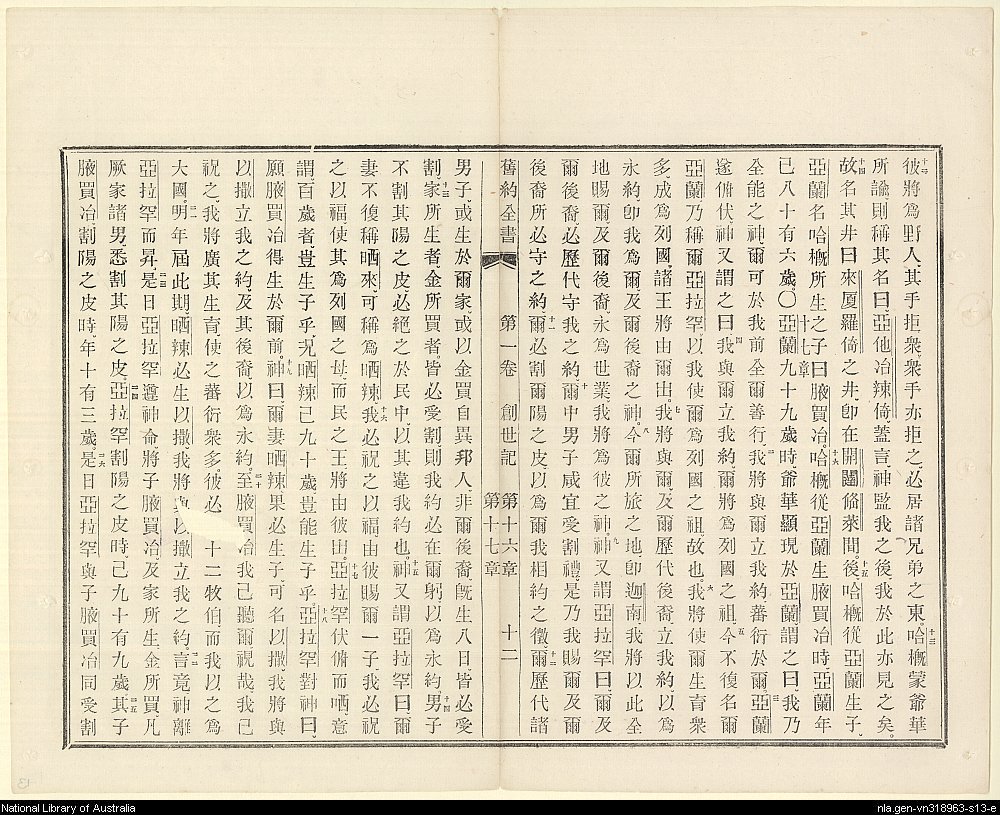 彼將爲野人、其手拒衆、衆手亦拒之、必居諸兄弟之東。十三哈概蒙爺華
所諭、則稱其名曰、亞他冶辣倚、蓋言、神監我之後、我於此亦見之矣。
十四故名其井曰來厦羅倚之井、卽在開䦱倏萊間。十五後哈概從亞蘭生子、
亞蘭名哈概所生之子曰腋買冶。十六哈概從亞蘭生腋買冶時、亞蘭年
已八十有六歲。〇十七章亞蘭九十九歲時、爺華顯現於亞蘭謂之曰、我乃
全能之神、爾可於我前全爾善行。二我將與爾立我約、蕃衍於爾。三亞蘭
遂俯伏、神又謂之曰、四我與爾立我約、爾將爲列國之祖。五今不復名爾
亞蘭、乃稱爾亞拉罕、以我使爾爲列國之祖、故也。六我將使爾生育衆
多、成爲列國、諸王將由爾出。七我將與爾及爾歷代後裔、立我約、以爲
永約、卽我爲爾及爾後裔之神。八今爾所旅之地、卽迦南、我將以此全
地賜爾及爾後裔、永爲世業、我將爲彼之神。九神又謂亞拉罕曰、爾及
爾後裔、必歷代守我之約。十爾中男子、咸宜受割禮、是乃我賜爾及爾
後裔所必守之約。十一爾必割爾陽之皮、以爲爾我相約之徵。十二爾歷代諸
舊約全書 第一卷 創世記 第十六章 第十七章 十二
男子、或生於爾家、或以金買自異邦人、非爾後裔、旣生八日、皆必受
割。十三家所生者、金所買者、皆必受割、則我約必在爾躬、以爲永約。十四男子
不割其陽之皮、必絕之於民中、以其違我約也。十五神又謂亞拉罕曰、爾
妻不復稱晒來、可稱爲晒辣。十六我必祝之以福、由彼賜爾一子、我必祝
之以福、使其爲列國之母、而民之王將由彼出。十七亞拉罕伏俯而晒、意
謂百歲者、豈生子乎、況晒辣已九十歲、豈能生子乎。十八亞拉罕對神曰、
願腋買冶得生於爾前。十九神曰、爾妻晒辣果必生子、可名以撒、我將與
以撒立我之約、及其後裔以爲永約。二十至腋買冶、我已聽爾視哉、我已
祝之、我將廣其生育、使之蕃衍衆多、彼必 十二牧伯、而我以之爲
大國。二一明年屆此期、晒辣必生以撒、我將與以撒立我之約。二二言竟、神離
亞拉罕而昇。二三是日亞拉罕遵神命、將子腋買冶、及家所生、金所買、凡
厥家諸男、悉割其陽之皮。二四亞拉罕割陽之皮時、已九十有九歲。二五其子
腋買冶割陽之皮時、年十有三歲。二六是日亞拉罕與子腋買冶同受割
National Library of Australia
nla.gen-vn318963-s13-e